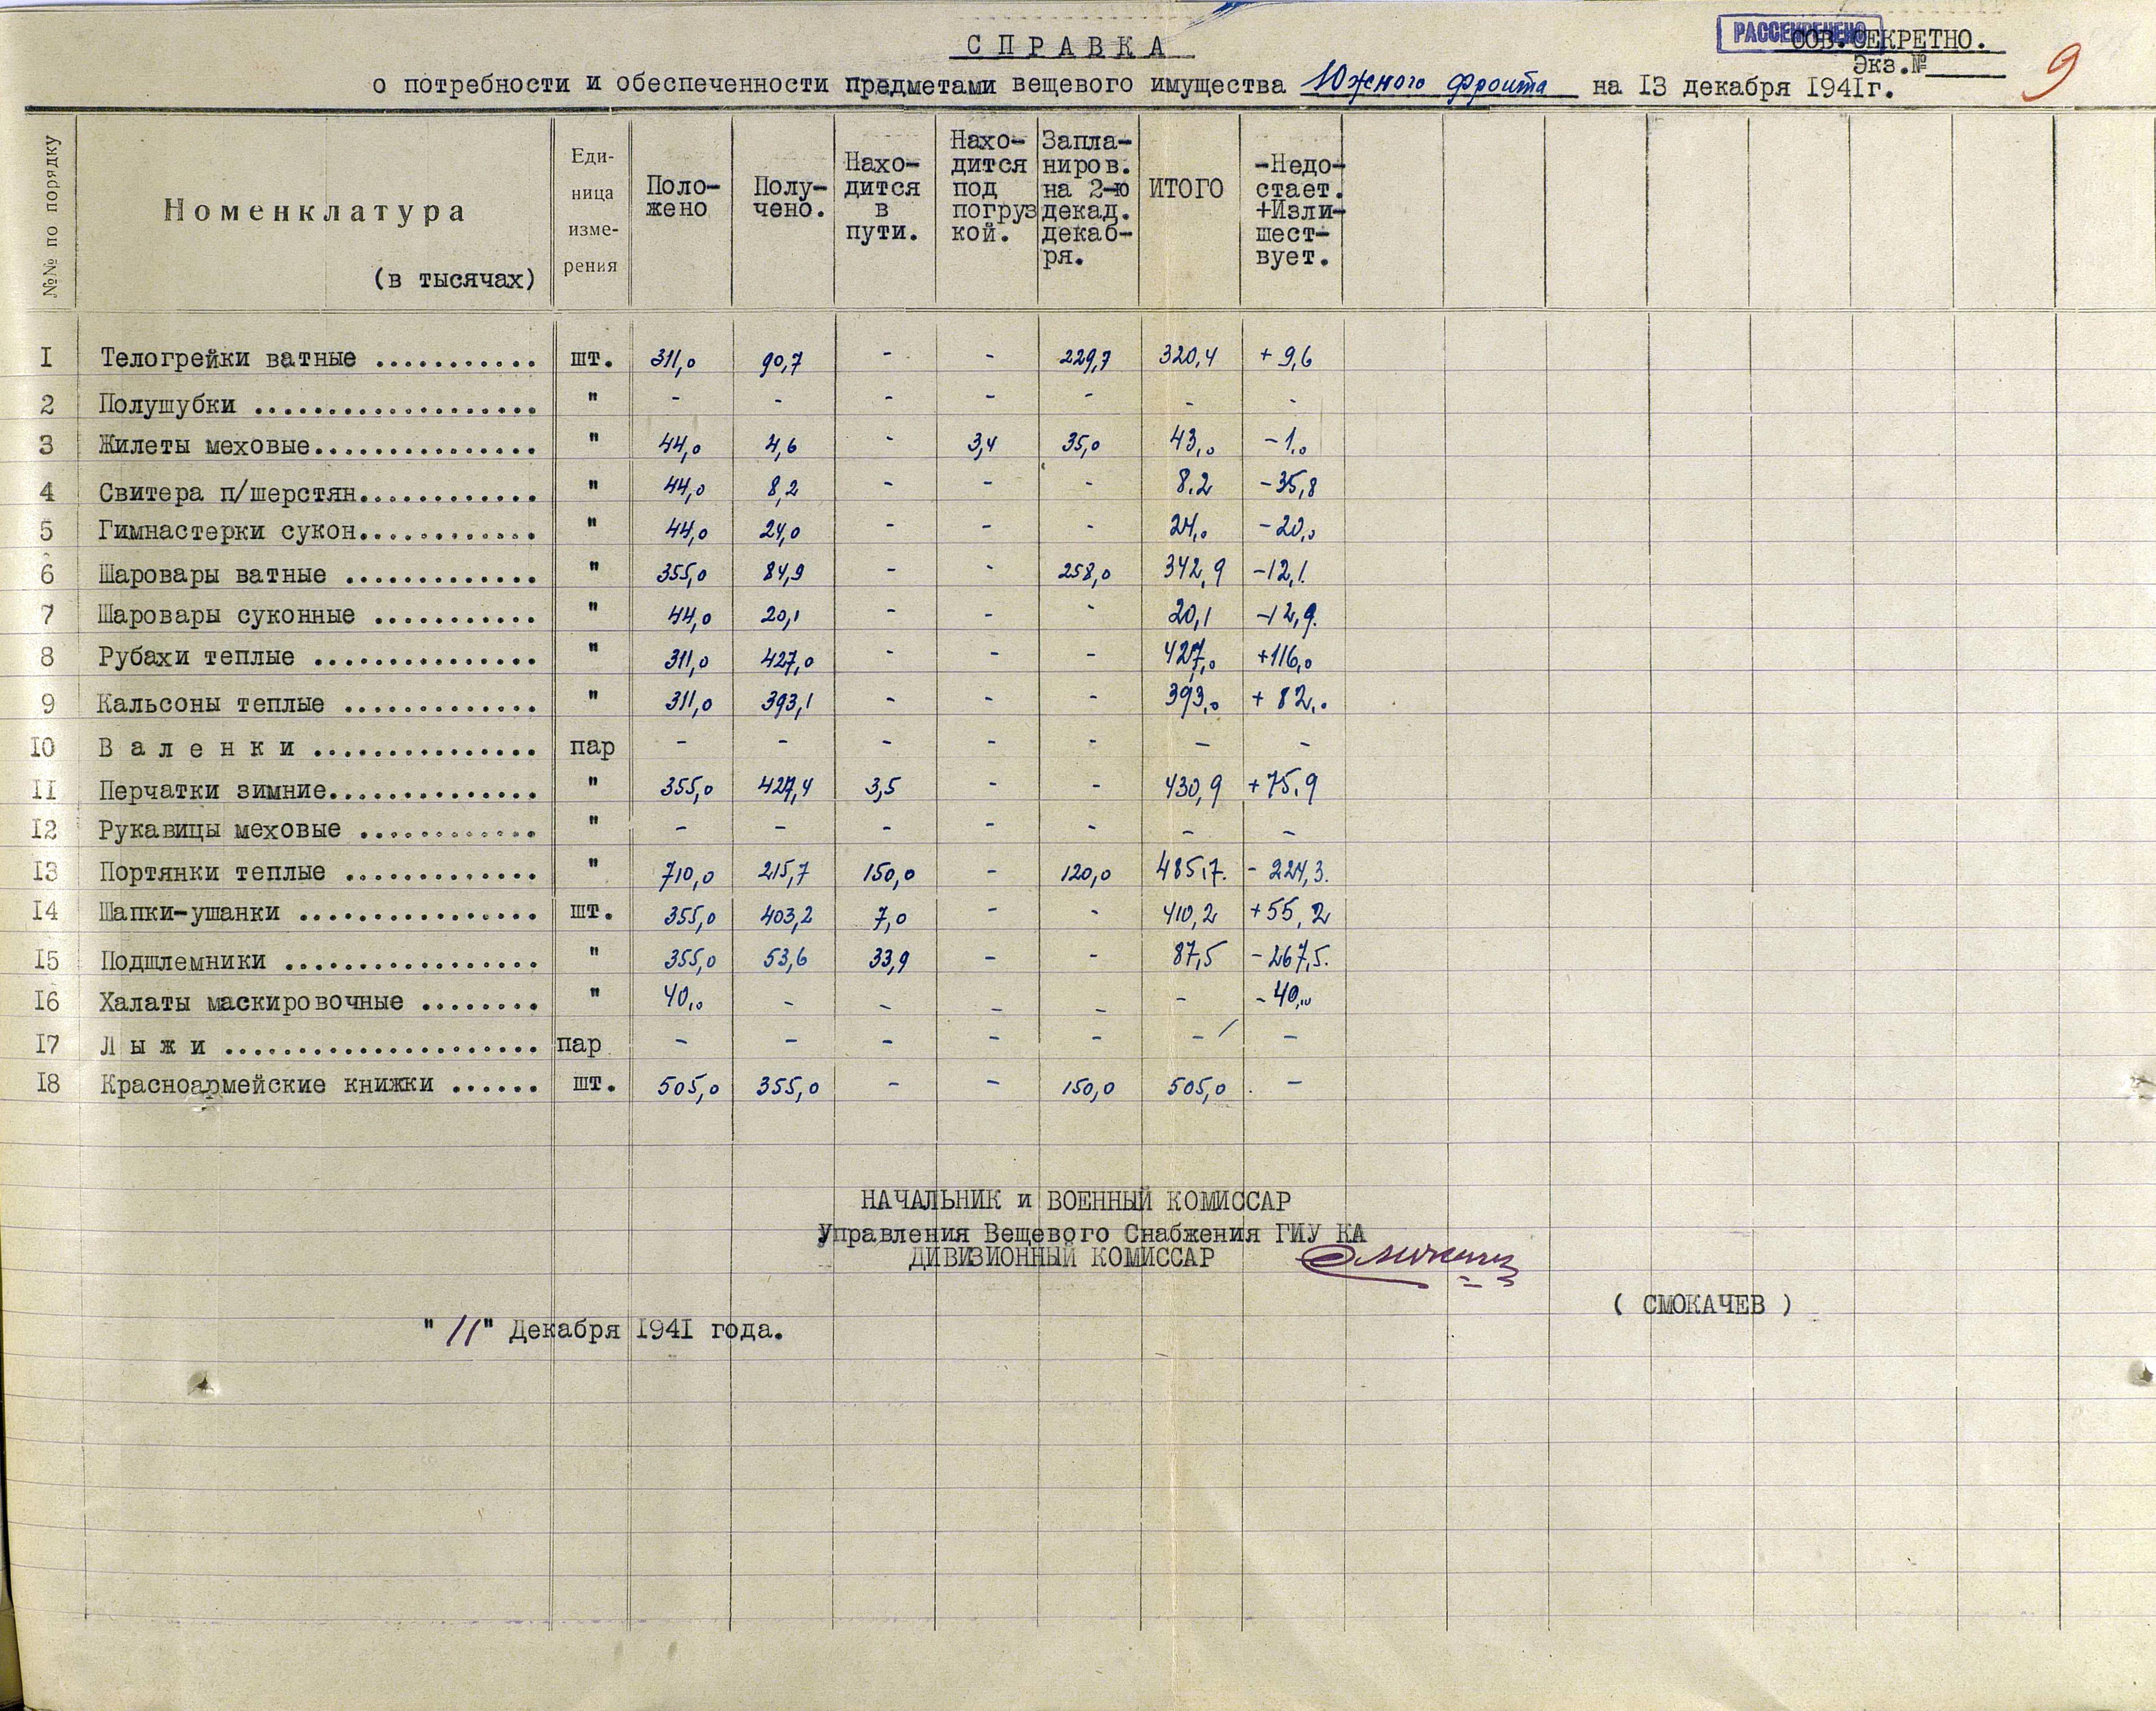 СПРАВКА
РАССЕКРЕЧЕНО
СОВ.СЕКРЕТНО.
Экз.№
9
о потребности и обеспеченности предметами вещевого имущества Южного фронта на 13 декабря 1941г.
№№ по порядку | Номенклатура (в тысячах) | Еди-ница изме-рения | Поло-жено | Полу-чено. | Нахо-дится в пути. | Нахо-дится под погруз кой. | Запла-ниров. на 2-ю декад. декаб-ря. | ИТОГО | -Недо-стает. +Изли-шест-вует.
1 Телогрейки ватные ........... шт. 311,0 90,7 - - 229,7 320,4 + 9,6
2 Полушубки ................... " - - - - - - -
3 Жилеты меховые............... " 44,0 4,6 - 3,4 35,0 43,0 -1,0
4 Свитера п/шерстян............ " 44,0 8,2 - - - 8.2 -35,8
5 Гимнастерки сукон............ " 44,0 24,0 - - - 24,0 -20,0
6 Шаровары ватные ............. " 355,0 84,9 - - 258,0 342,9 -12,1.
7 Шаровары суконные ........... " 44,0 20,1 - - - 20,1 -12,9.
8 Рубахи теплые ............... " 311,0 427,0 - - - 427,0 +116,0
9 Кальсоны теплые ............. " 311,0 393,1 - - - 393,0 + 82,0
10 Валенки ............... пар - - - - - - -
11 Перчатки зимние.............. " 355,0 427,4 3,5 - - 430,9 +75,9
12 Рукавицы меховые ............ " - - - - - - -
13 Портянки теплые ............. " 710,0 215,7 150,0 - 120,0 485,7. - 224,3.
14 Шапки-ушанки ................ шт. 355,0 403,2 7,0 - - 410,2 +55,2
15 Подшлемники ................. " 355,0 53,6 33,9 - - 87,5 -267,5.
16 Халаты маскировочные ........ " 40,0 - - - - - -40,0
17 Лыжи ..................... пар - - - - - - -
18 Красноармейские книжки ...... шт. 505,0 355,0 - - 150,0 505,0 -
НАЧАЛЬНИК и ВОЕННЫЙ КОМИССАР
Управления Вещевого Снабжения ГИУ КА
ДИВИЗИОННЫЙ КОМИССАР
( СМОКАЧЕВ )
"11" Декабря 1941 года.